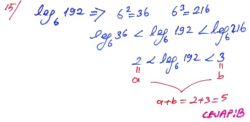 15/ log₆ 192 ⇒ 6²=36 6³=216
log₆ 36 < log₆ 192 < log₆ 216
2 < log₆ 192 < 3
= =
a b
a+b = 2+3 = 5
CEVAP:B